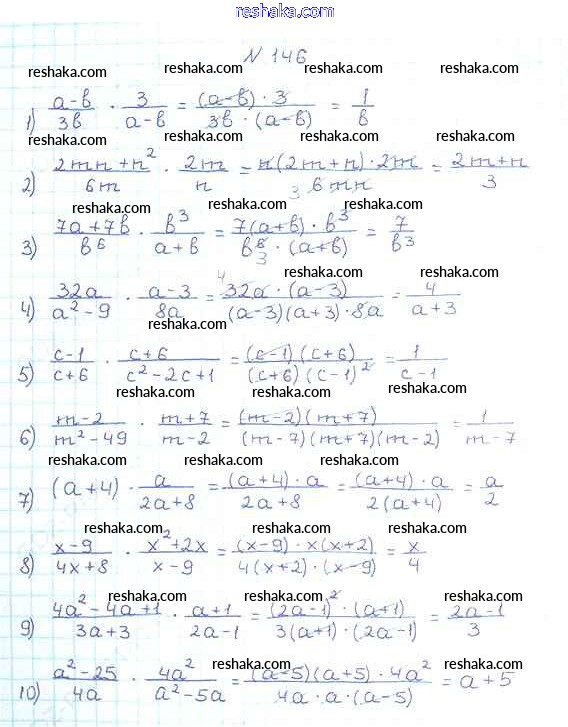 reshaka.com
N 146
reshaka.com reshaka.com reshaka.com
1) (a-b)/(3b) · 3/(a-b) = ((a-b) · 3)/(3b · (a-b)) = 1/b
reshaka.com reshaka.com reshaka.com
2) (2mn + n²)/(6m) · 2m/n = (n(2m+n) · 2m)/(6mn) = (2m+n)/3
reshaka.com reshaka.com reshaka.com
3) (7a+7b)/b⁶ · b³/(a+b) = (7(a+b) · b³)/(b⁶ · (a+b)) = 7/b³
reshaka.com reshaka.com
4) 32a/(a²-9) · (a-3)/(8a) = (32a · (a-3))/((a-3)(a+3) · 8a) = 4/(a+3)
reshaka.com reshaka.com
5) (c-1)/(c+6) · (c+6)/(c²-2c+1) = ((c-1)(c+6))/((c+6)(c-1)²) = 1/(c-1)
reshaka.com reshaka.com reshaka.com
6) (m-2)/(m²-49) · (m+7)/(m-2) = ((m-2)(m+7))/((m-7)(m+7)(m-2)) = 1/(m-7)
reshaka.com reshaka.com reshaka.com
7) (a+4) · a/(2a+8) = ((a+4) · a)/(2a+8) = ((a+4) · a)/(2(a+4)) = a/2
reshaka.com reshaka.com reshaka.com
8) (x-9)/(4x+8) · (x²+2x)/(x-9) = ((x-9) · x(x+2))/(4(x+2) · (x-9)) = x/4
reshaka.com reshaka.com reshaka.com
9) (4a²-4a+1)/(3a+3) · (a+1)/(2a-1) = ((2a-1)² · (a+1))/(3(a+1) · (2a-1)) = (2a-1)/3
reshaka.com reshaka.com reshaka.com
10) (a²-25)/(4a) · 4a²/(a²-5a) = ((a-5)(a+5) · 4a²)/(4a · a · (a-5)) = a+5
reshaka.com reshaka.com reshaka.com